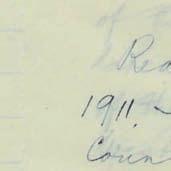 Rea
1911. -
Coun